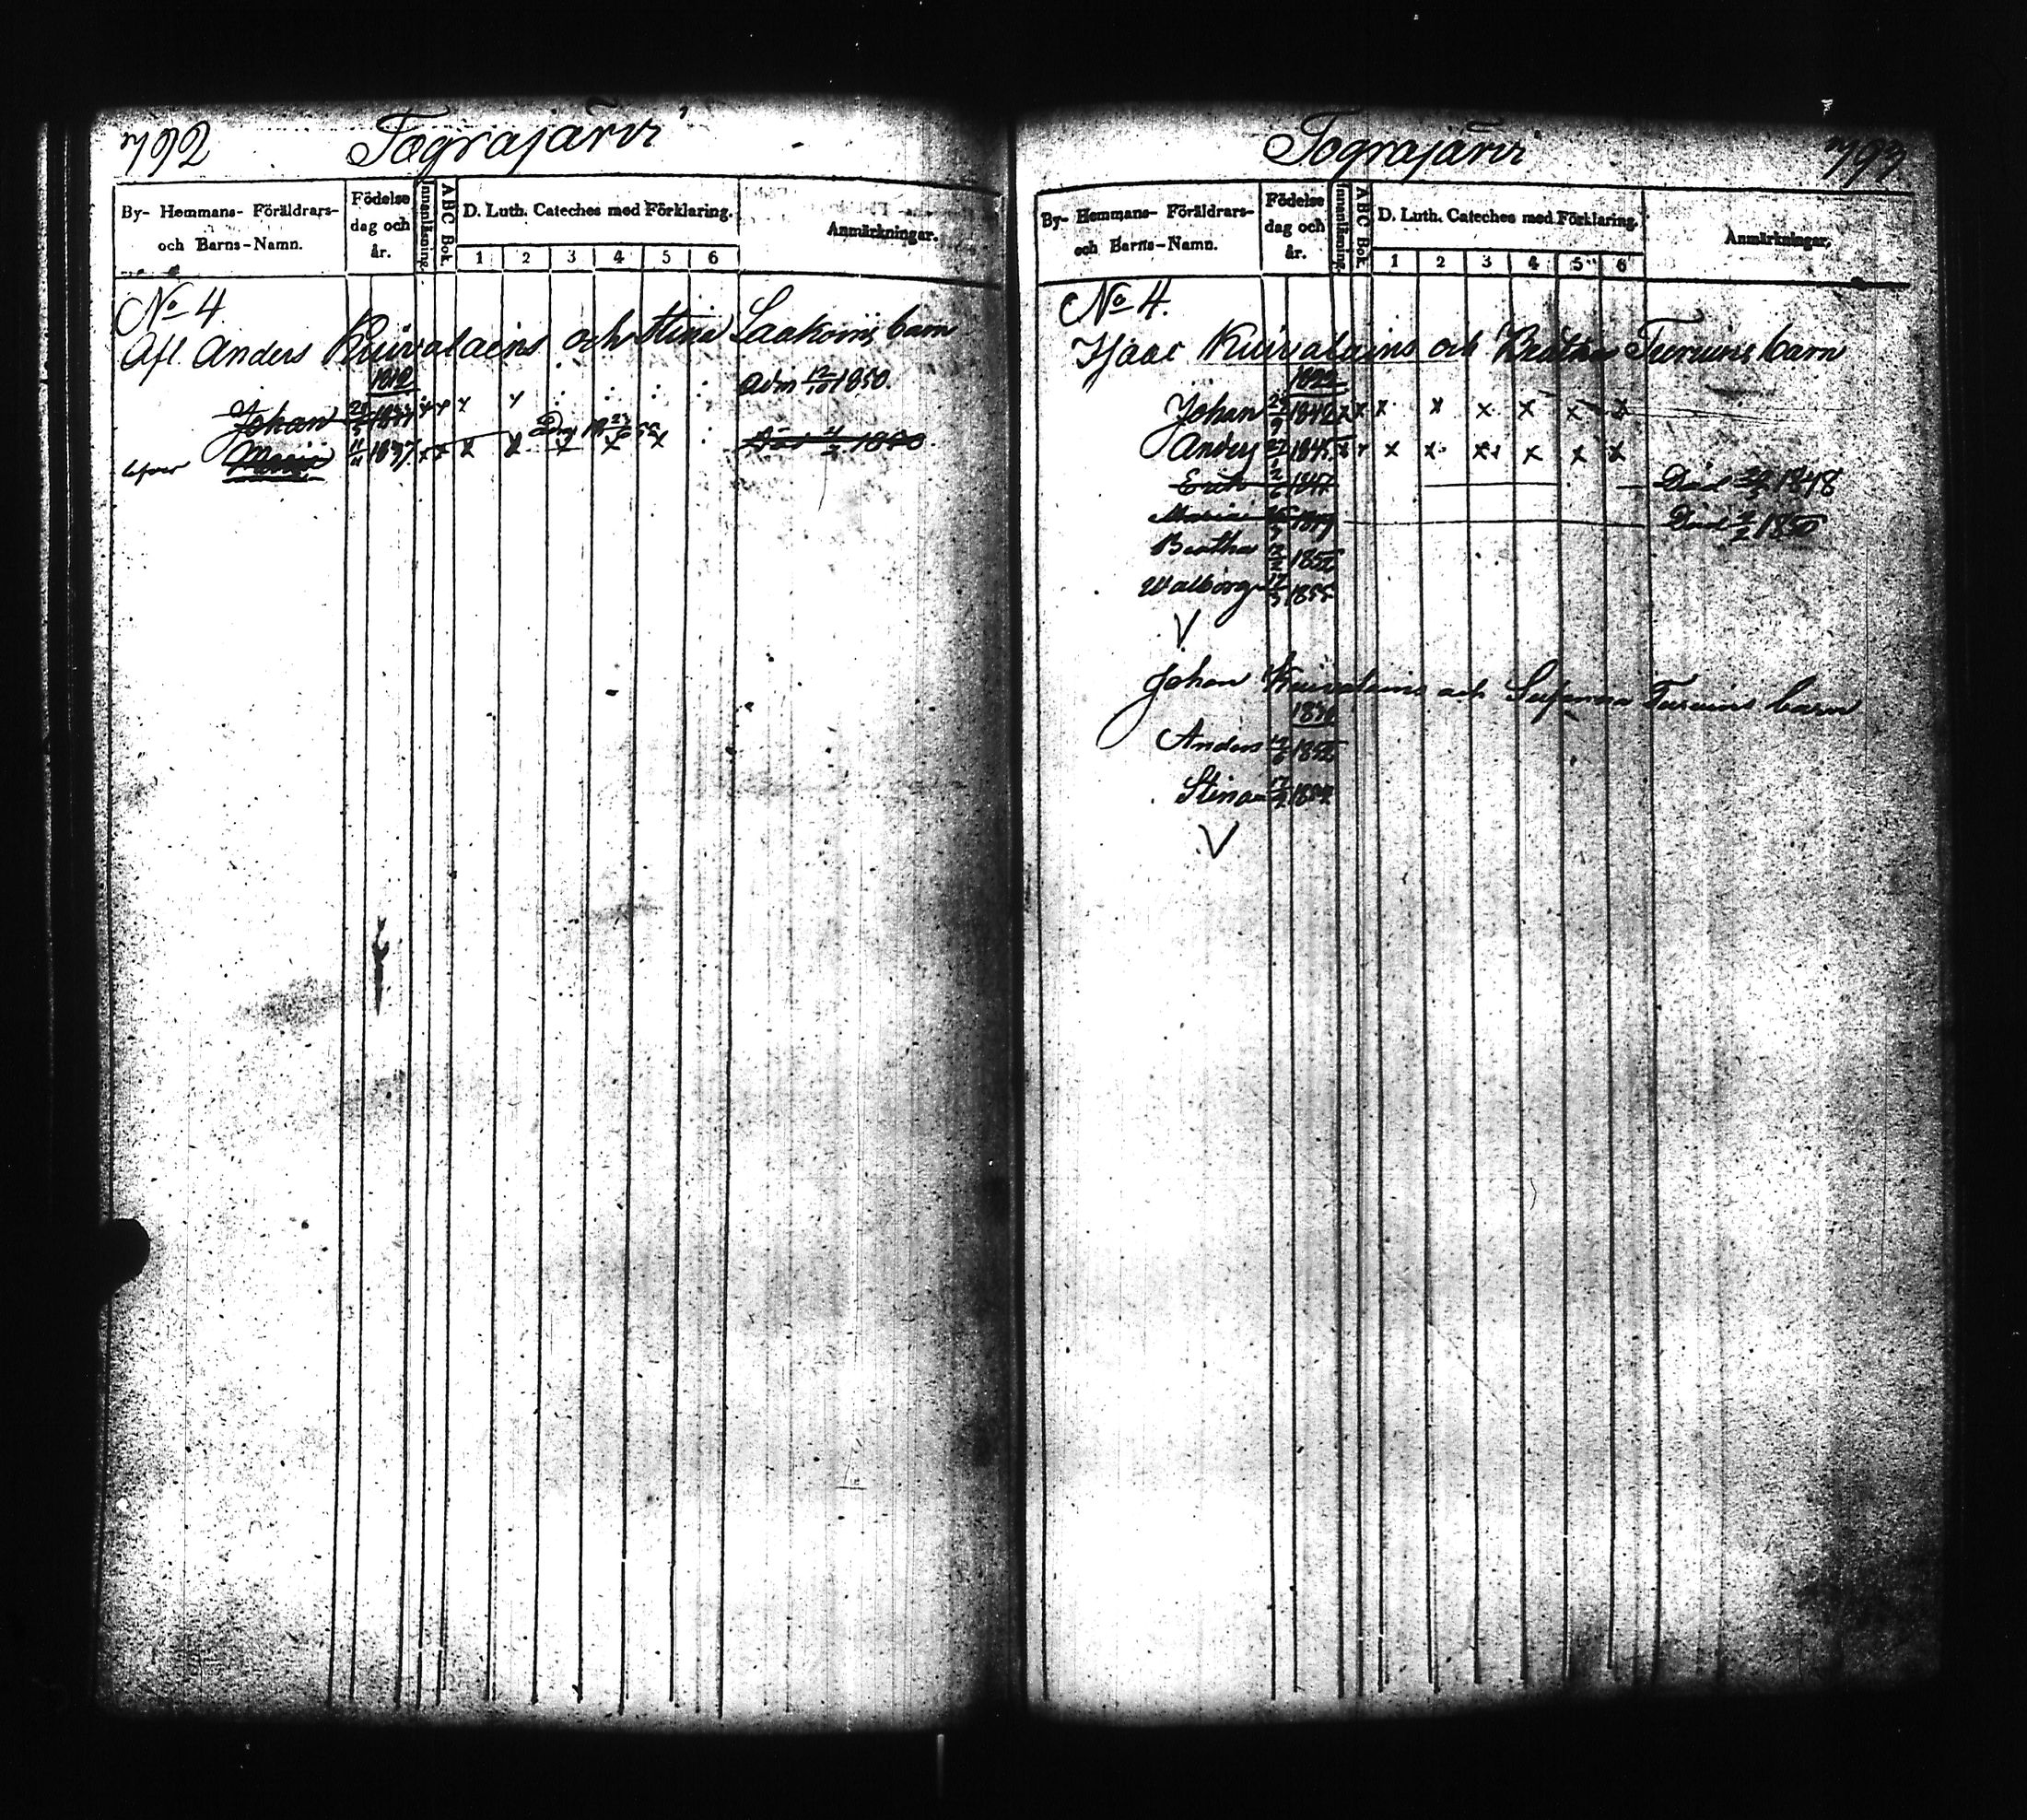 792
Tograjärvi
By- Hemmans- Föräldrars- och Barns-Namn.
Födelse dag och år.
Innanläsning.
ABC Bok.
D. Luth. Cateches med Förklaring.
1 2 3 4 5 6
Anmärkningar.
No 4
Afl. Anders Kuivalains och Stina Laakoins barn
Johan Adm 12/10 1850
Maria 11/11 1837 x x x x x x x Död
Tograjärvi
793
By- Hemmans- Föräldrars- och Barns-Namn.
Födelse dag och år.
Innanläsning.
ABC Bok.
D. Luth. Cateches med Förklaring.
1 2 3 4 5 6
Anmärkningar.
No 4.
Isaac Kuivalains och Beatha Turuins barn
Johan 1842 x x x x x x x x
Anders 1845 x x x x x x x x
Erik 1847 Död 1848
Maria 1849 Död 1850
Beatha 1852
Walborg 1855
V
Johan Kuivalains och Susanna Turuins barn
Anders
Stina
V